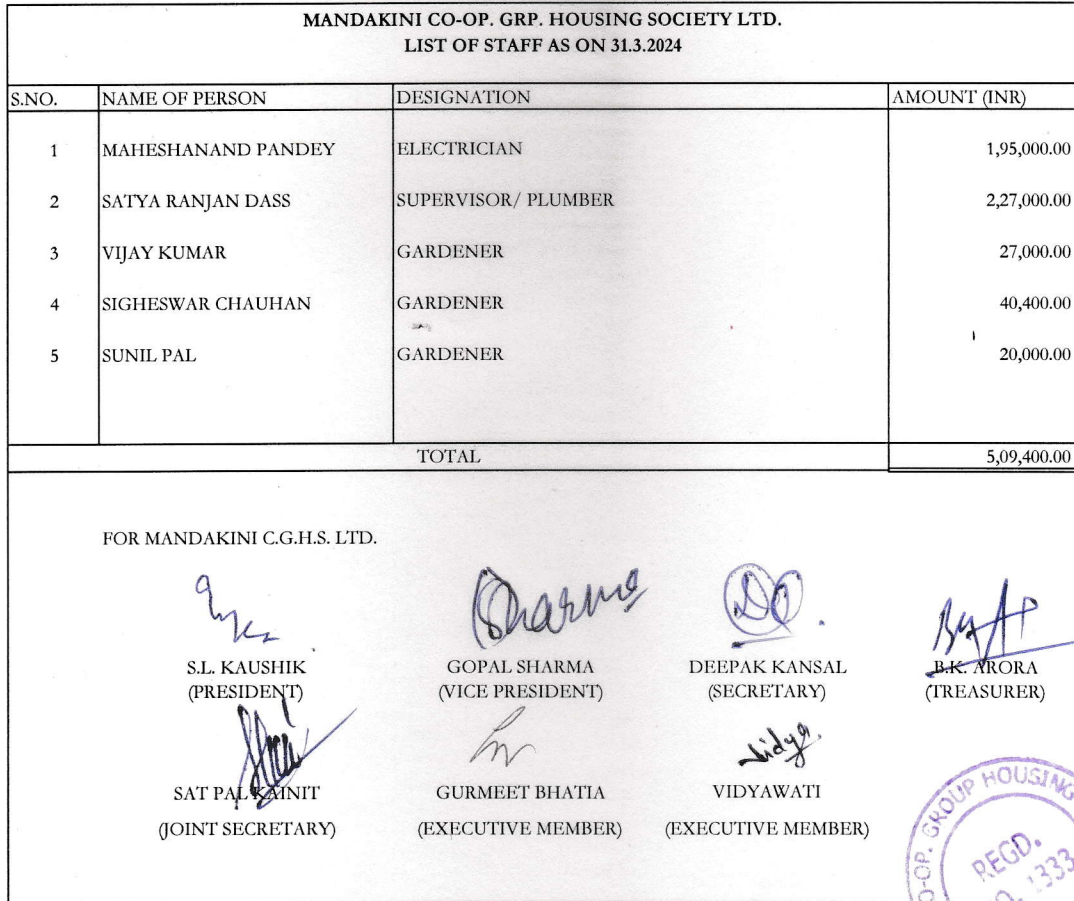 MANDAKINI CO-OP. GRP. HOUSING SOCIETY LTD.
LIST OF STAFF AS ON 31.3.2024
S.NO. NAME OF PERSON DESIGNATION AMOUNT (INR)
1 MAHESHANAND PANDEY ELECTRICIAN 1,95,000.00
2 SATYA RANJAN DASS SUPERVISOR/ PLUMBER 2,27,000.00
3 VIJAY KUMAR GARDENER 27,000.00
4 SIGHESWAR CHAUHAN GARDENER 40,400.00
5 SUNIL PAL GARDENER 20,000.00
TOTAL 5,09,400.00
FOR MANDAKINI C.G.H.S. LTD.
Sharma
S.L. KAUSHIK GOPAL SHARMA DEEPAK KANSAL B.K. ARORA
(PRESIDENT) (VICE PRESIDENT) (SECRETARY) (TREASURER)
Vidya
SAT PAL KAINIT GURMEET BHATIA VIDYAWATI
(JOINT SECRETARY) (EXECUTIVE MEMBER) (EXECUTIVE MEMBER)
CO-OP. GROUP HOUSING
REGD.
NO. 1333